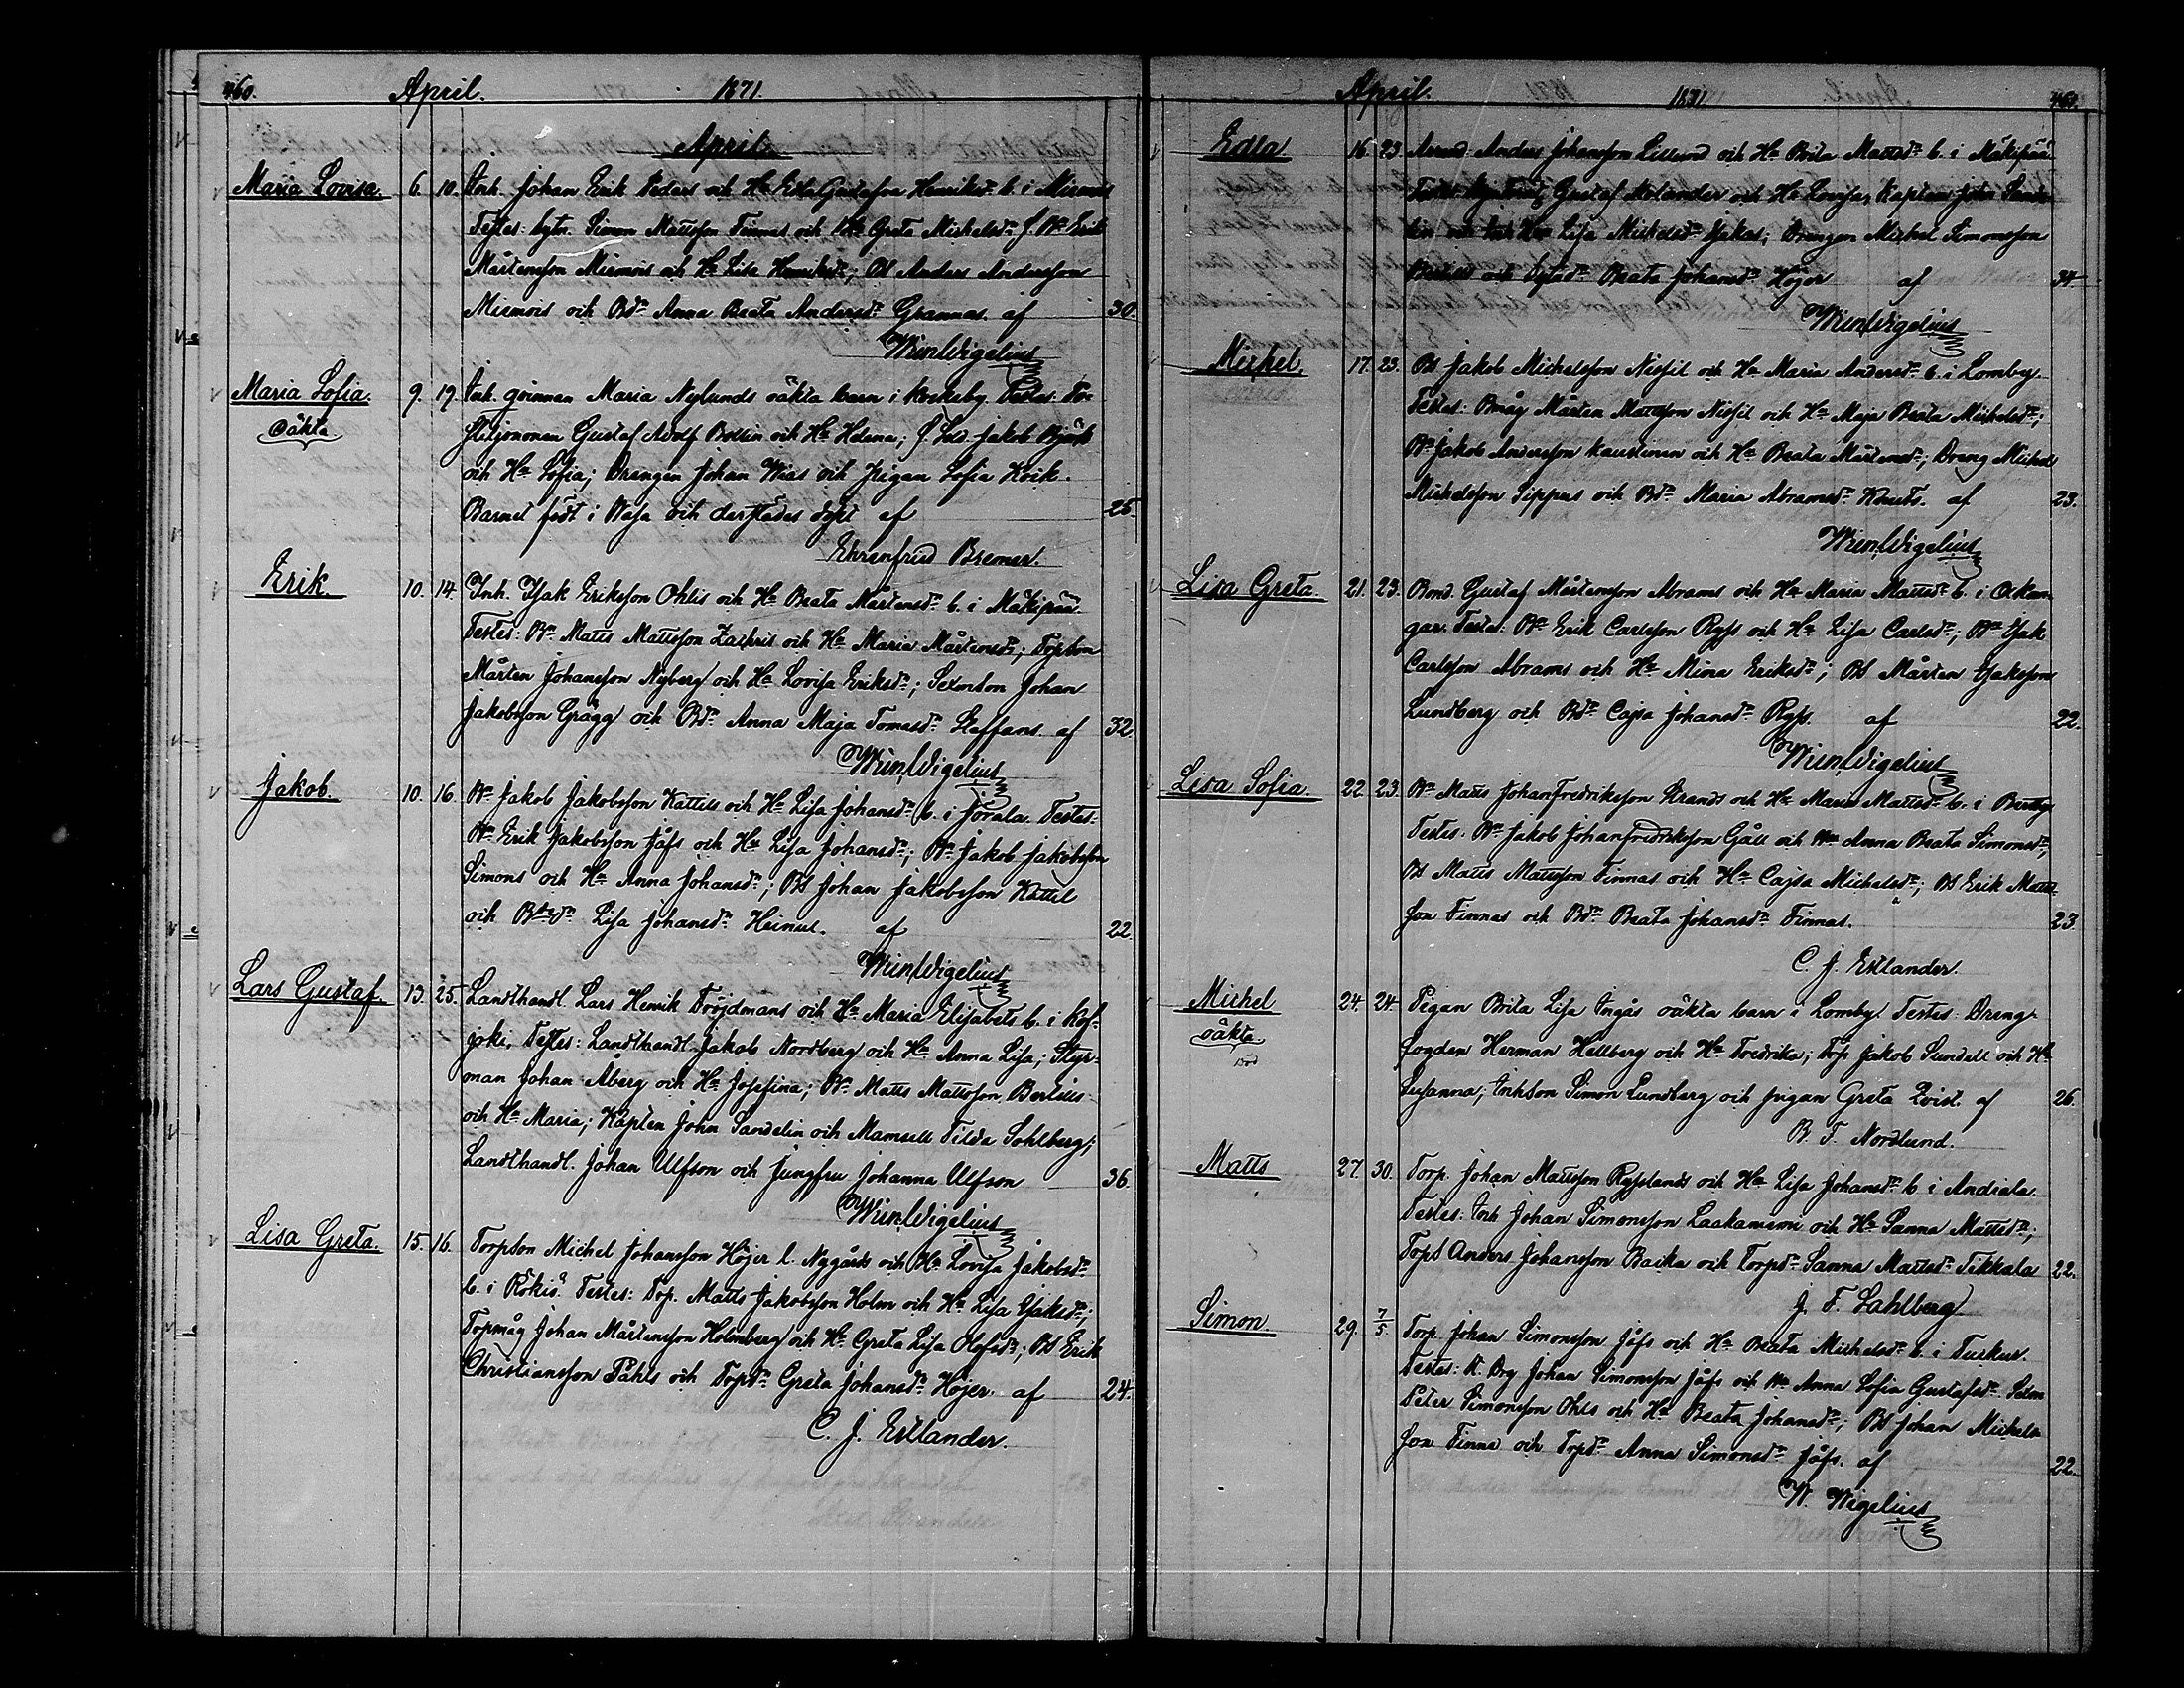 460. April. 1871.
April.
Maria Lovisa. 6. 10. Inh. Johan Erik Peders och Hu Edla Gustafva Henriksdr b. i Miemois
Testes: bytn. Simon Mattsson Finnas och Hu Greta Michelsdr f. Bn Erik
Mårtensson Miemois och Hu Lisa Henriksdr; Bs Anders Andersson
Miemois och Bdr Anna Beata Andersdr Grannas. af 30.
Wm Wigelius
Maria Sofia. 9. 19. Inh. qvinnan Maria Nylunds oäkta barn i Korkeby. Testes:
oäkta Gustaf Adolf Bollin och Hu Helena; f. Sold. Jakob Björk
och Hu Sofia; Drengen Johan Wias och Pigan Sofia Kvik.
Barnet födt i Wasa och derstädes döpt af 25.
Ehrenfried Bremer.
Erik. 10. 14. Inh. Isak Eriksson Ohlis och Hu Beata Mårtensdr b. i Mäkipää.
Testes: Bn Matts Mattsson Zachris och Hu Maria Mårtensdr; Torpson
Mårten Johansson Nyberg och Hu Lovisa Eriksdr; Sexmton Johan
Jakobsson Grägg och Bdr Anna Maja Tomasdr Staffans. af 32.
Wm Wigelius
Jakob. 10. 16. Bn Jakob Jakobsson Kattils och Hu Lisa Johansdr b. i Jörala. Testes:
Bn Erik Jakobsson Jåfs och Hu Lisa Johansdr; Bn Jakob Jakobsson
Simons och Hu Anna Johansdr; Bs Johan Jakobsson Kattil
och Lisa Johansdr Heinul. af 22.
Wm Wigelius
Lars Gustaf. 13. 25. Landthandl. Lars Henrik Tröjdmans och Hu Maria Elisabets b. i Kof-
joki. Testes: Landthandl. Jakob Nordberg och Hu Anna Lisa; Styr-
man Johan Åberg och Hu Josefina; Bn Matts Mattsson Bertils
och Hu Maria; Kapten John Sandelin och Mamsell Tilda Sohlberg;
Landthandl. Johan Ulfson och Jungfru Johanna Ulfson 36.
Wm Wigelius
Lisa Greta. 15. 16. Torpson Michel Johansson Höjer l. Nygårds och Hu Lovisa Jakobsdr
b. i Rökiö. Testes: Torp. Matts Jakobsson Holm och Hu Lisa Isaksdr;
Torpmåg Johan Mårtensson Holmberg och Hu Greta Lisa Olofsdr; Bs Erik
Christiansson Påhls och Torpdr Greta Johansdr Höjer. af 24.
C. J. Estlander.
April. 1871. 461.
Edla. 16. 23. Anders Johansson Lillsund och Hu Brita Mattsdr b. i Mäkipää
Gustaf Molander och Hu Lovisa, Kapten John Sande-
lin och Hu Lisa Michelsdr Jakas; Drengen Michel Simonsson
och Beata Johansdr Höjer af 34
Wm Wigelius
Michel. 17. 23. Bs Jakob Michelsson Nissil och Hu Maria Andersdr b. i Lomby.
Testes: Bmåg Mårten Mattsson Nissil och Hu Maja Beata Michelsdr;
Bn Jakob Andersson Kaustinen och Hu Beata Mårtensdr; Dreng Michel
Michelsson Sippus och Bdr Maria Abramsdr Knuts. af 23.
Wm Wigelius
Lisa Greta. 21. 23. Bond. Gustaf Mårtensson Abrams och Hu Maria Mattsdr b. i Oxkan-
gar. Testes: Bn Erik Carlsson Ryss och Hu Lisa Carlsdr; Bn Isak
Carlsson Abrams och Hu Mina Eriksdr; Bs Mårten Isaksson
Lundberg och Bdr Cajsa Johansdr Ryss. af 22.
Wm Wigelius
Lisa Sofia. 22. 23. Bn Matts Johanfredriksson Strands och Hu Maria Mattsdr b. i Bertby
Testes: Bn Jakob Johanfredriksson Gåll och Hu Anna Beata Simonsdr;
Bs Matts Mattsson Finnas och Hu Cajsa Michelsdr; Bs Erik Matts-
son Finnas och Bdr Beata Johansdr Finnas. 23.
C. J. Estlander.
Michel 24. 24. Pigan Brita Lisa Ingås oäkta barn i Lomby. Testes: Dreng-
oäkta fogden Herman Hellberg och Hu Fredrika; Torp Jakob Sundell och Hu
Död Susanna; Inhson Simon Lundberg och pigan Greta Qvist. af 26.
B. F. Nordlund.
Matts 27. 30. Torp. Johan Mattsson Rysslands och Hu Lisa Johansdr b. i Andiala.
Testes: Inh Johan Simonsson Laakaniemi och Hu Sanna Mattsdr;
Torps Anders Johansson Backa och Torpdr Sanna Mattsdr Tikkala 22.
J. F. Sahlberg
Simon. 29. 7/5. Torp. Johan Simonsson Jåfs och Hu Beata Michelsdr b. i Tuckur.
Testes: Johan Simonsson Jåfs och Hu Anna Sofia Gustafsdr
Peter Simonsson Ohls och Hu Beata Johansdr; Bs Johan Michels-
son Finne och Torpdr Anna Simonsdr Jåfs. af 22.
W. Wigelius